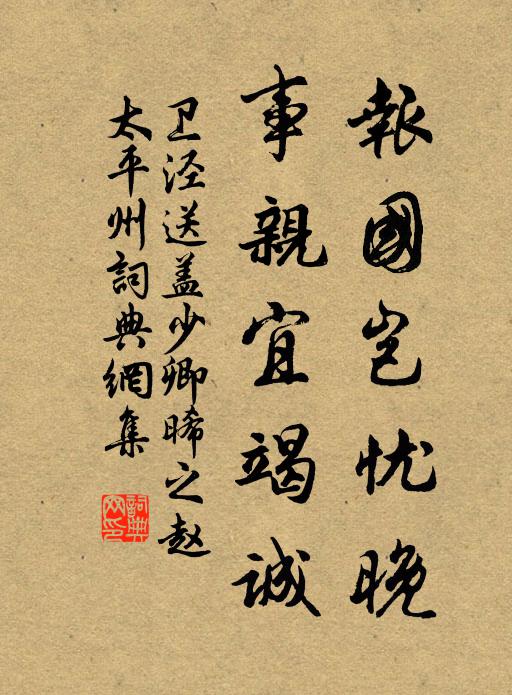 報國岂忧晚
事親宜竭诚
卫泾送盖少卿晞之赵
太平州詞典網集
詞典网印